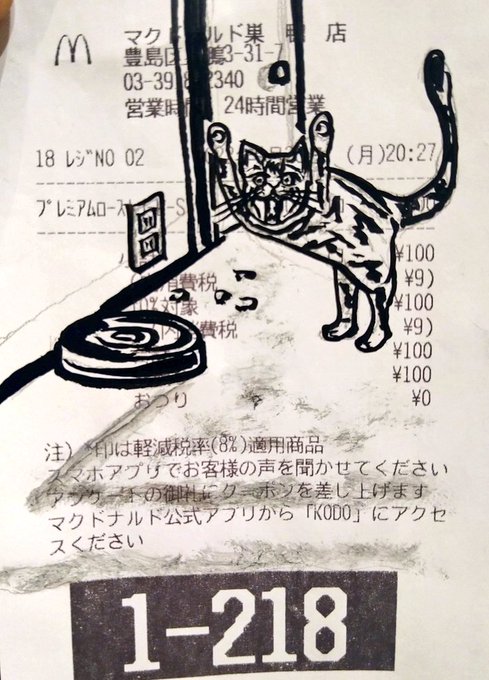 マクドナルド巣鴨店
豊島区 鴨3-31-7
03-39 2340
営業時間 24時間営業
18 レジNO 02 (月)20:27
プレミアムロースト S
¥100
消費税 ¥9)
10%対象 ¥100
内 消費税 ¥9)
¥100
¥100
おつり ¥0
注) *印は軽減税率(8%)適用商品
スマホアプリでお客様の声を聞かせてください
アンケートの御礼にクーポンを差し上げます
マクドナルド公式アプリから「KODO」にアクセ
スください
1-218